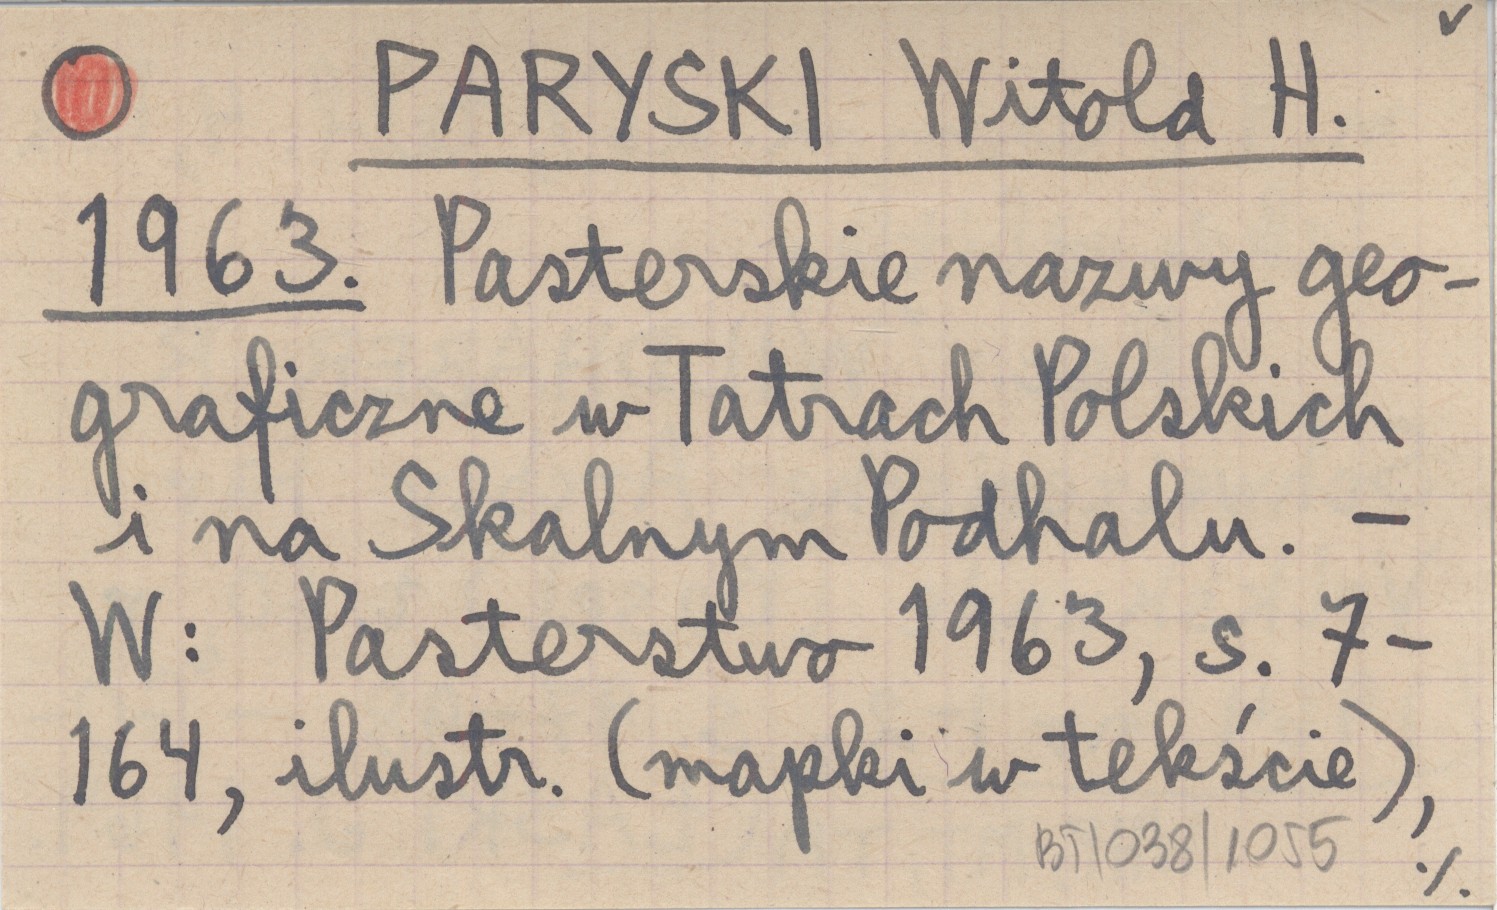 ✓
PARYSKI Witold H.
1963. Pasterskie nazwy geo-
graficzne w Tatrach Polskich
i na Skalnym Podhalu. –
W: Pasterstwo 1963, s. 7-
164, ilustr. (mapki w tekście),
BT/038/1055
./.